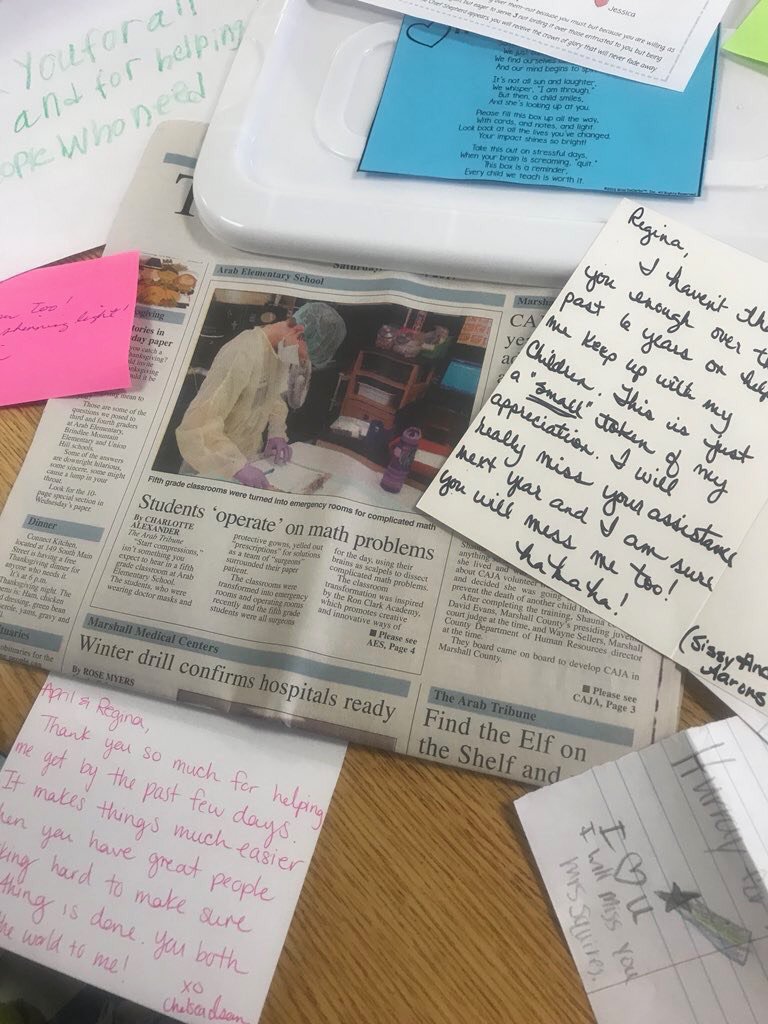 you for all
and for helping
people who need
Jessica
over them-not because you must, but because you are willing as
but eager to serve, 3 not lording it over those entrusted to you but being
the Chief Shepherd appears, you will receive the crown of glory that will never fade away
We find ourselves
And our mind begins to
It's not all sun and laughter,
We whisper, "I am through."
But then, a child smiles,
And she's looking up at you.
Please fill this box up all the way,
With cards, and notes, and light.
Look back at all the lives you've changed,
Your impact shines so bright!
Take this out on stressful days,
When your brain is screaming, "quit."
This box is a reminder,
Every child we teach is worth it.
Too!
light!
T
Saturday
Arab Elementary School
Fifth grade classrooms were turned into emergency rooms for complicated math
Students 'operate' on math problems
By CHARLOTTE
ALEXANDER
The Arab Tribune
"Start compressions,"
isn't something you
expect to hear in a fifth
grade classroom at Arab
Elementary School.
The students, who were
wearing doctor masks and
protective gowns, yelled out
"prescriptions" for solutions
as a team of "surgeons"
surrounded their
patient.
The classrooms were
transformed into emergency
rooms and operating rooms
recently and the fifth grade
students were all surgeons
for the day, using their
brains as scalpels to dissect
complicated math problems.
The classroom
transformation was inspired
by the Ron Clark Academy,
which promotes creative
and innovative ways of
Please see
AES, Page 4
stories in
day paper
Those are some of the
questions we posed to
third and fourth graders
at Arab Elementary,
Brindlee Mountain
Elementary and Union
Hill schools.
Some of the answers
are downright hilarious,
some sincere, some might
cause a lump in your
throat.
Look for the 10-
page special section in
Wednesday's paper.
Dinner
Connect Kitchen,
located at 149 South Main
Street is having a free
Thanksgiving dinner for
anyone who needs it.
It's at 6 p.m.
Thanksgiving night. The
menu is: Ham, chicken
and dressing, green bean
casserole, yams, gravy and
Obituaries
obituaries for the
Marsh
CA
about CAJA volunteer
and decided she was going
prevent the death of another child like
After completing the training, Shauna
David Evans, Marshall County's presiding juvenile
court judge at the time, and Wayne Sellers, Marshall
County Department of Human Resources director
at the time.
They board came on board to develop CAJA in
Marshall County.
Please see
CAJA, Page 3
Marshall Medical Centers
Winter drill confirms hospitals ready
By ROSE MYERS
The Arab Tribune
Find the Elf on
the Shelf and
Regina,
I haven't
you enough over the
past 6 years on
me keep up with my
Children. This is just
a "small" token of my
appreciation. I will
really miss your assistance
next year and I am sure
you will miss me too!
ha ha ha!
(Sissy
Aarons
April & Regina,
Thank you so much for helping
me get by the past few days.
It makes things much easier
when you have great people
working hard to make sure
thing is done. You both
the world to me!
XO
I ♡ U
I will miss you
Miss Squires.